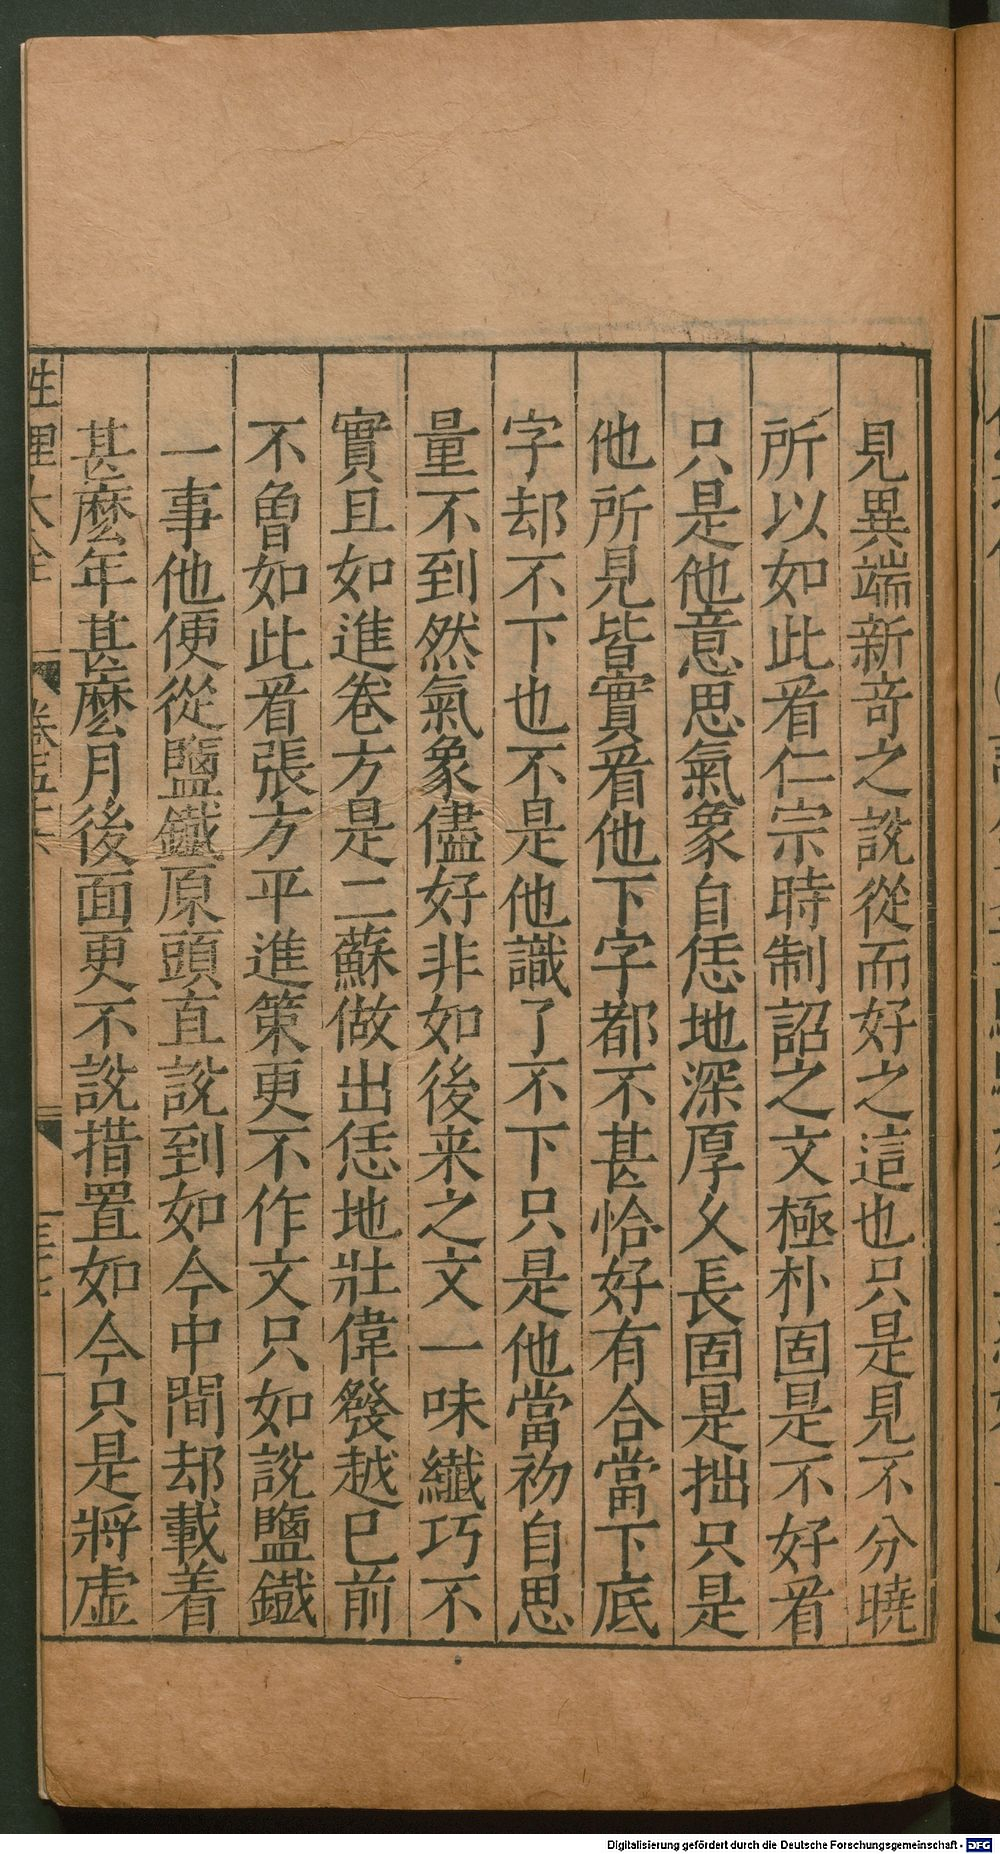 見異端新竒之說從而好之這也只是見不分曉
所以如此㸔仁宗時制詔之文極朴固是不好㸔
只是他意思氣象自恁地深厚久長固是拙只是
他所見皆實㸔他下字都不甚恰好有合當下底
字却不下也不是他識了不下只是他當初自思
量不到然氣象儘好非如後来之文一味纎巧不
實且如進卷方是二蘇做出恁地壯偉發越已前
不曽如此㸔張方平進策更不作文只如說鹽鐵
一事他便從鹽鐵原頭直說到如今中間却載着
甚麽年甚麽月後面更不說措置如今只是將虛
性理大全
卷五十六
Digitalisierung gefördert durch die Deutsche Forschungsgemeinschaft - DFG